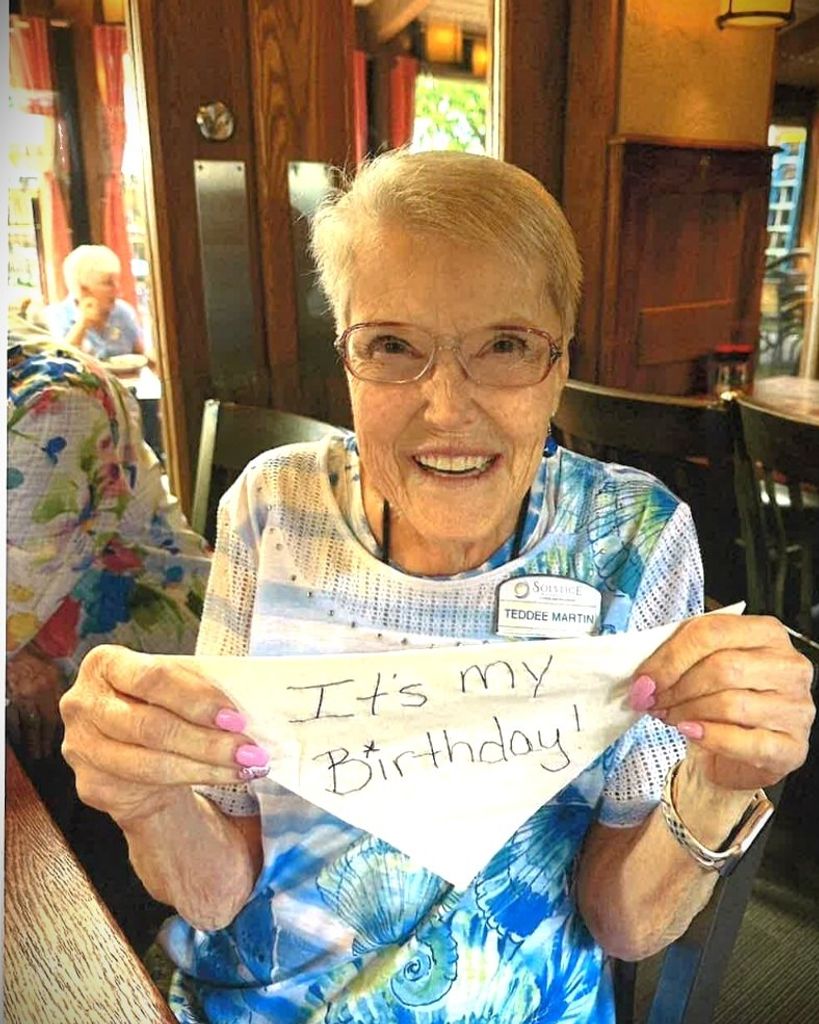 SOLSTICE
TEDDEE MARTIN
It's my
Birthday!